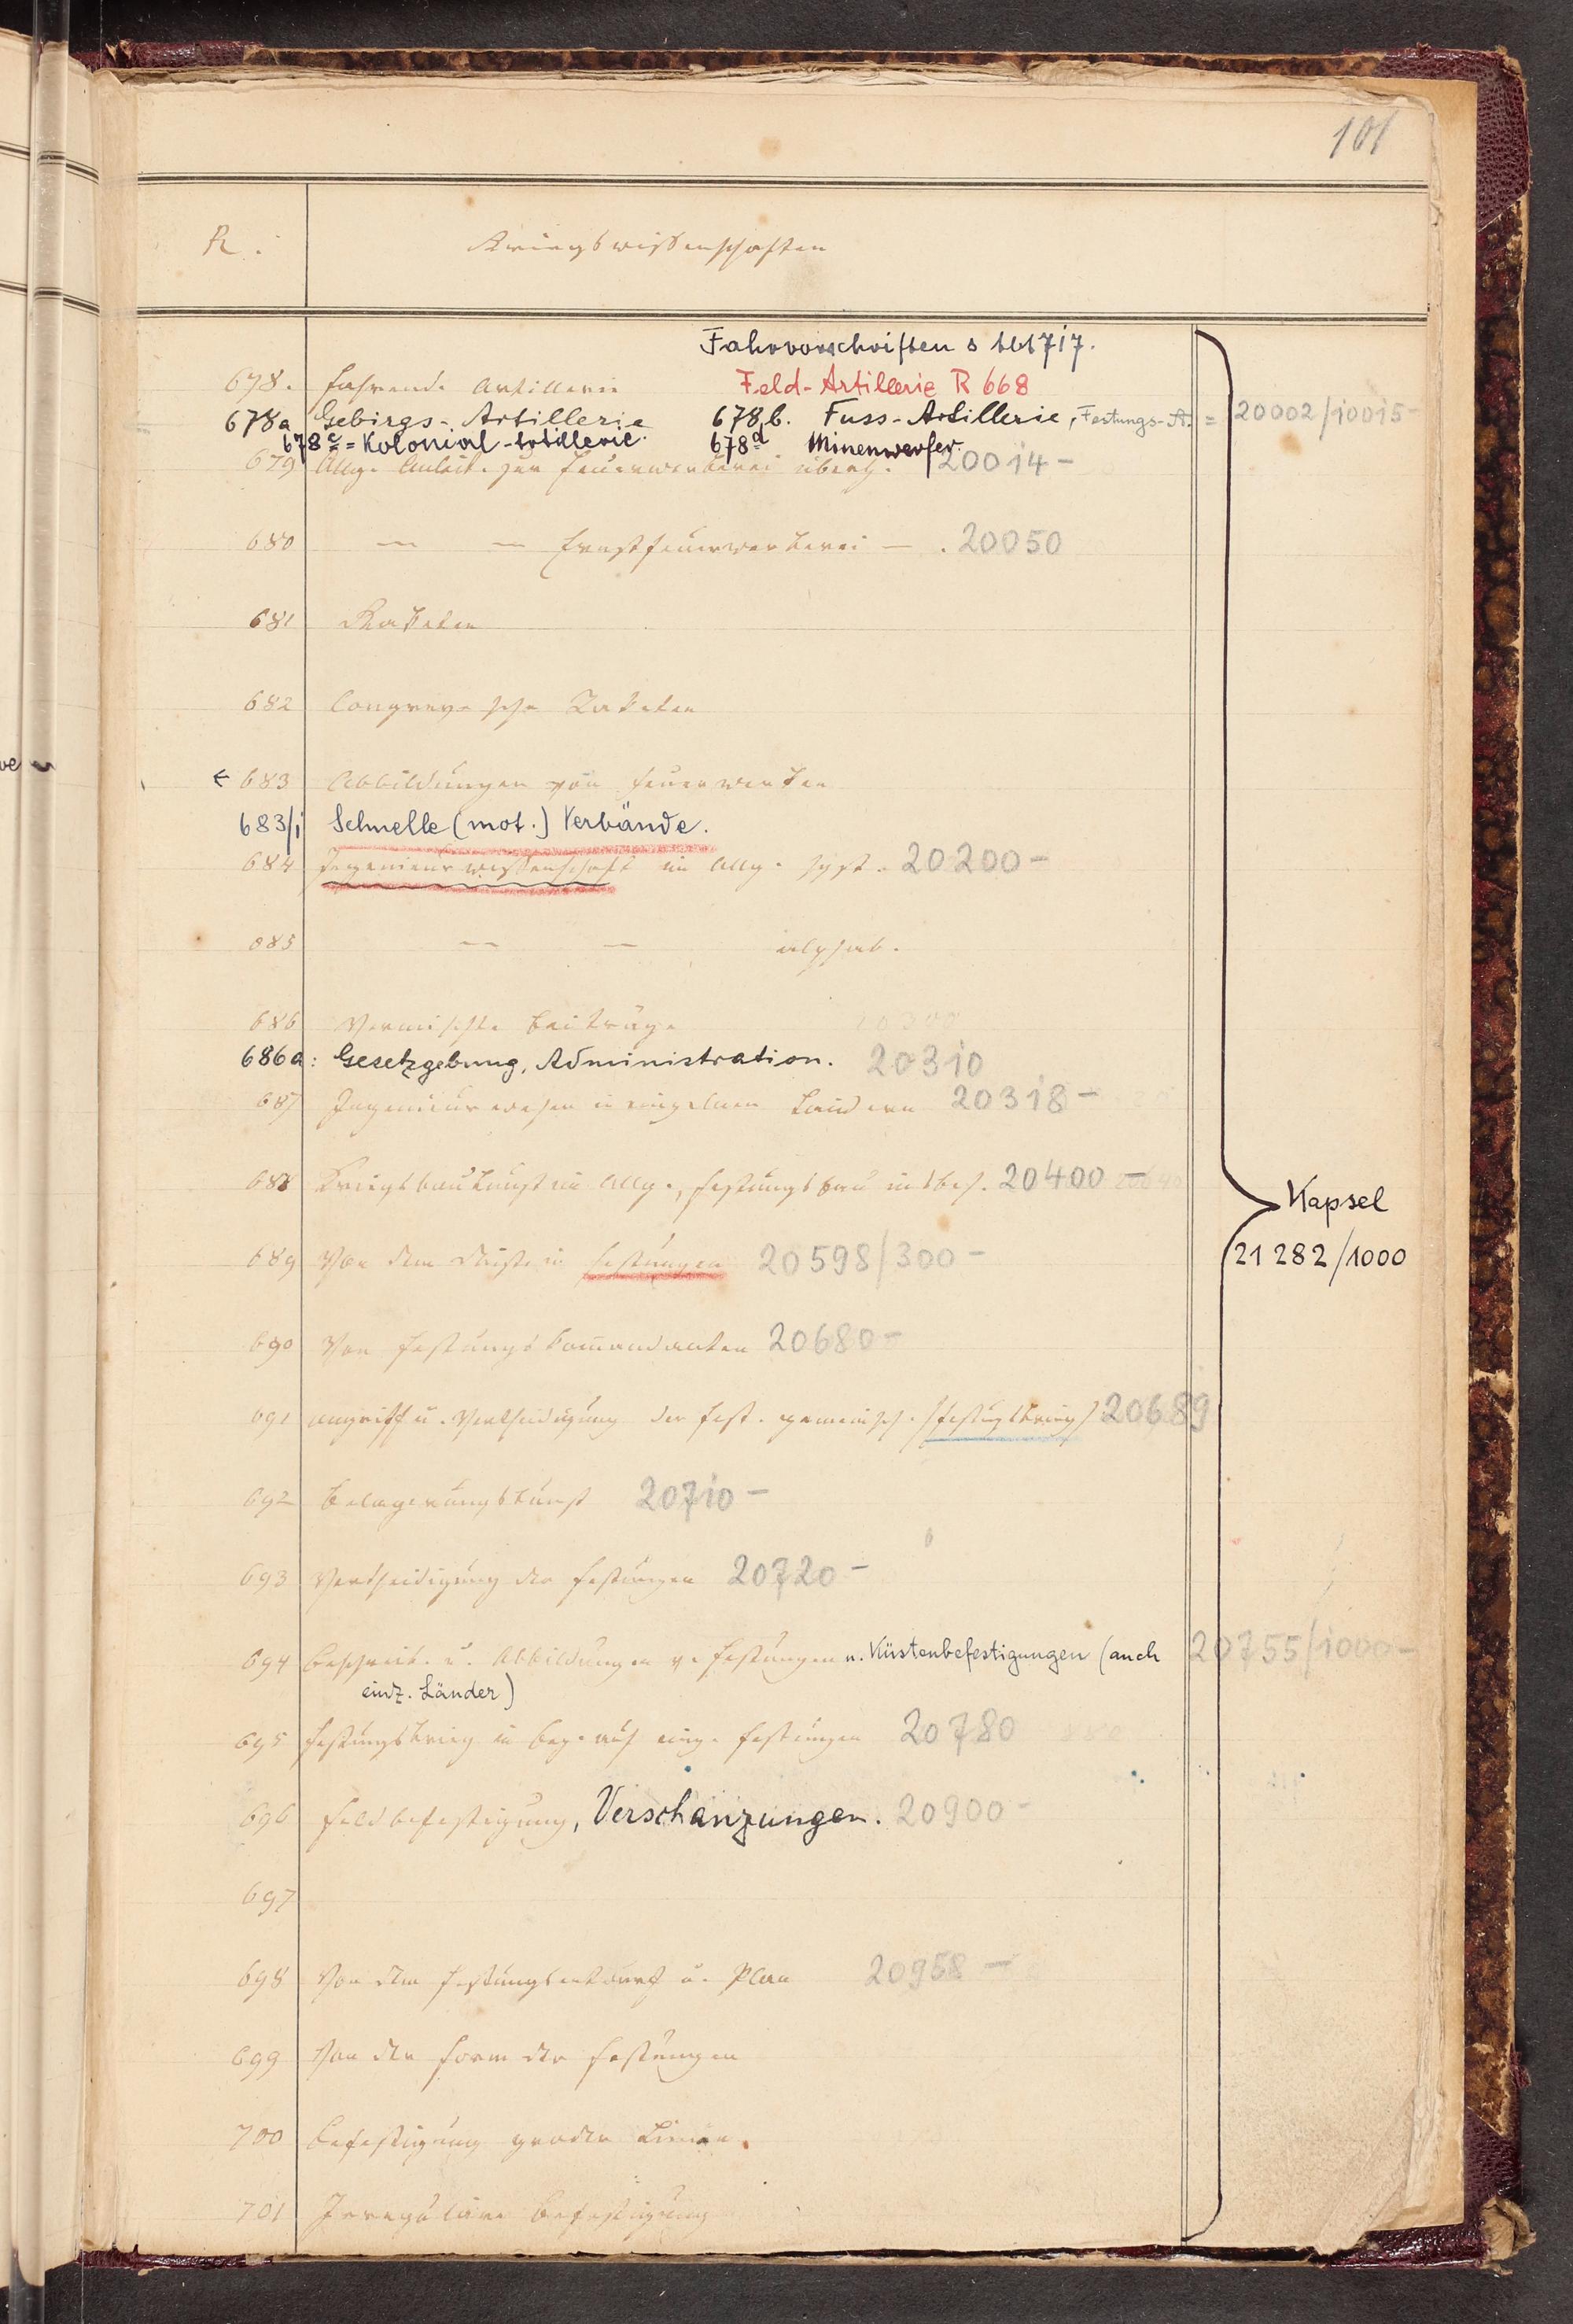 101
R. Kriegswissenschaften
Fahrvorschriften s
678. fahrende Artillerie Feld-Artillerie R 668
678a Gebirgs-Artillerie 678,b. Fuss-Artillerie, Festungs-A. = 20002/10015-
678c = Kolonial-Artillerie. 678d Minenwerfer.
679 Allg. Anleit. zur Feuerwerkerei überh. 20014-
680 — — Ernstfeuerwerkerei — . 20050
681 Raketen
682 Congreve'sche Raketen
683 Abbildungen von Feuerwerken
683/1 Schnelle (mot.) Verbände.
684 Ingenieurwissenschaft im Allg. syst. 20200-
685 — — alphab.
686 Vermischte Beiträge
686a: Gesetzgebung, Administration. 20310
687 Ingenieurwesen in einzelnen Ländern 20318-
688 Kriegsbaukunst im Allg., Festungsbau insbes. 20400-
689 Von dem Dienste in Festungen 20598/300-
Kapsel
21282/1000
690 Von Festungskommandanten 20680-
691 Angriff u. Vertheidigung der Fest. gemeinsch. (Festungskrieg) 20689
692 Belagerungskunst 20710-
693 Vertheidigung der Festungen 20720-
694 Beschreib. u. Abbildungen v. Festungen u. Küstenbefestigungen (auch 20755/1000-
einz. Länder)
695 Festungskrieg in Bez. auf einz. Festungen 20780
696 Feldbefestigung, Verschanzungen. 20900-
697
698 Von dem Festungsentwurf u. Plan 20958-
699 Von der Form der Festungen
700 Befestigung grader Linien.
701 Irreguläre Befestigung